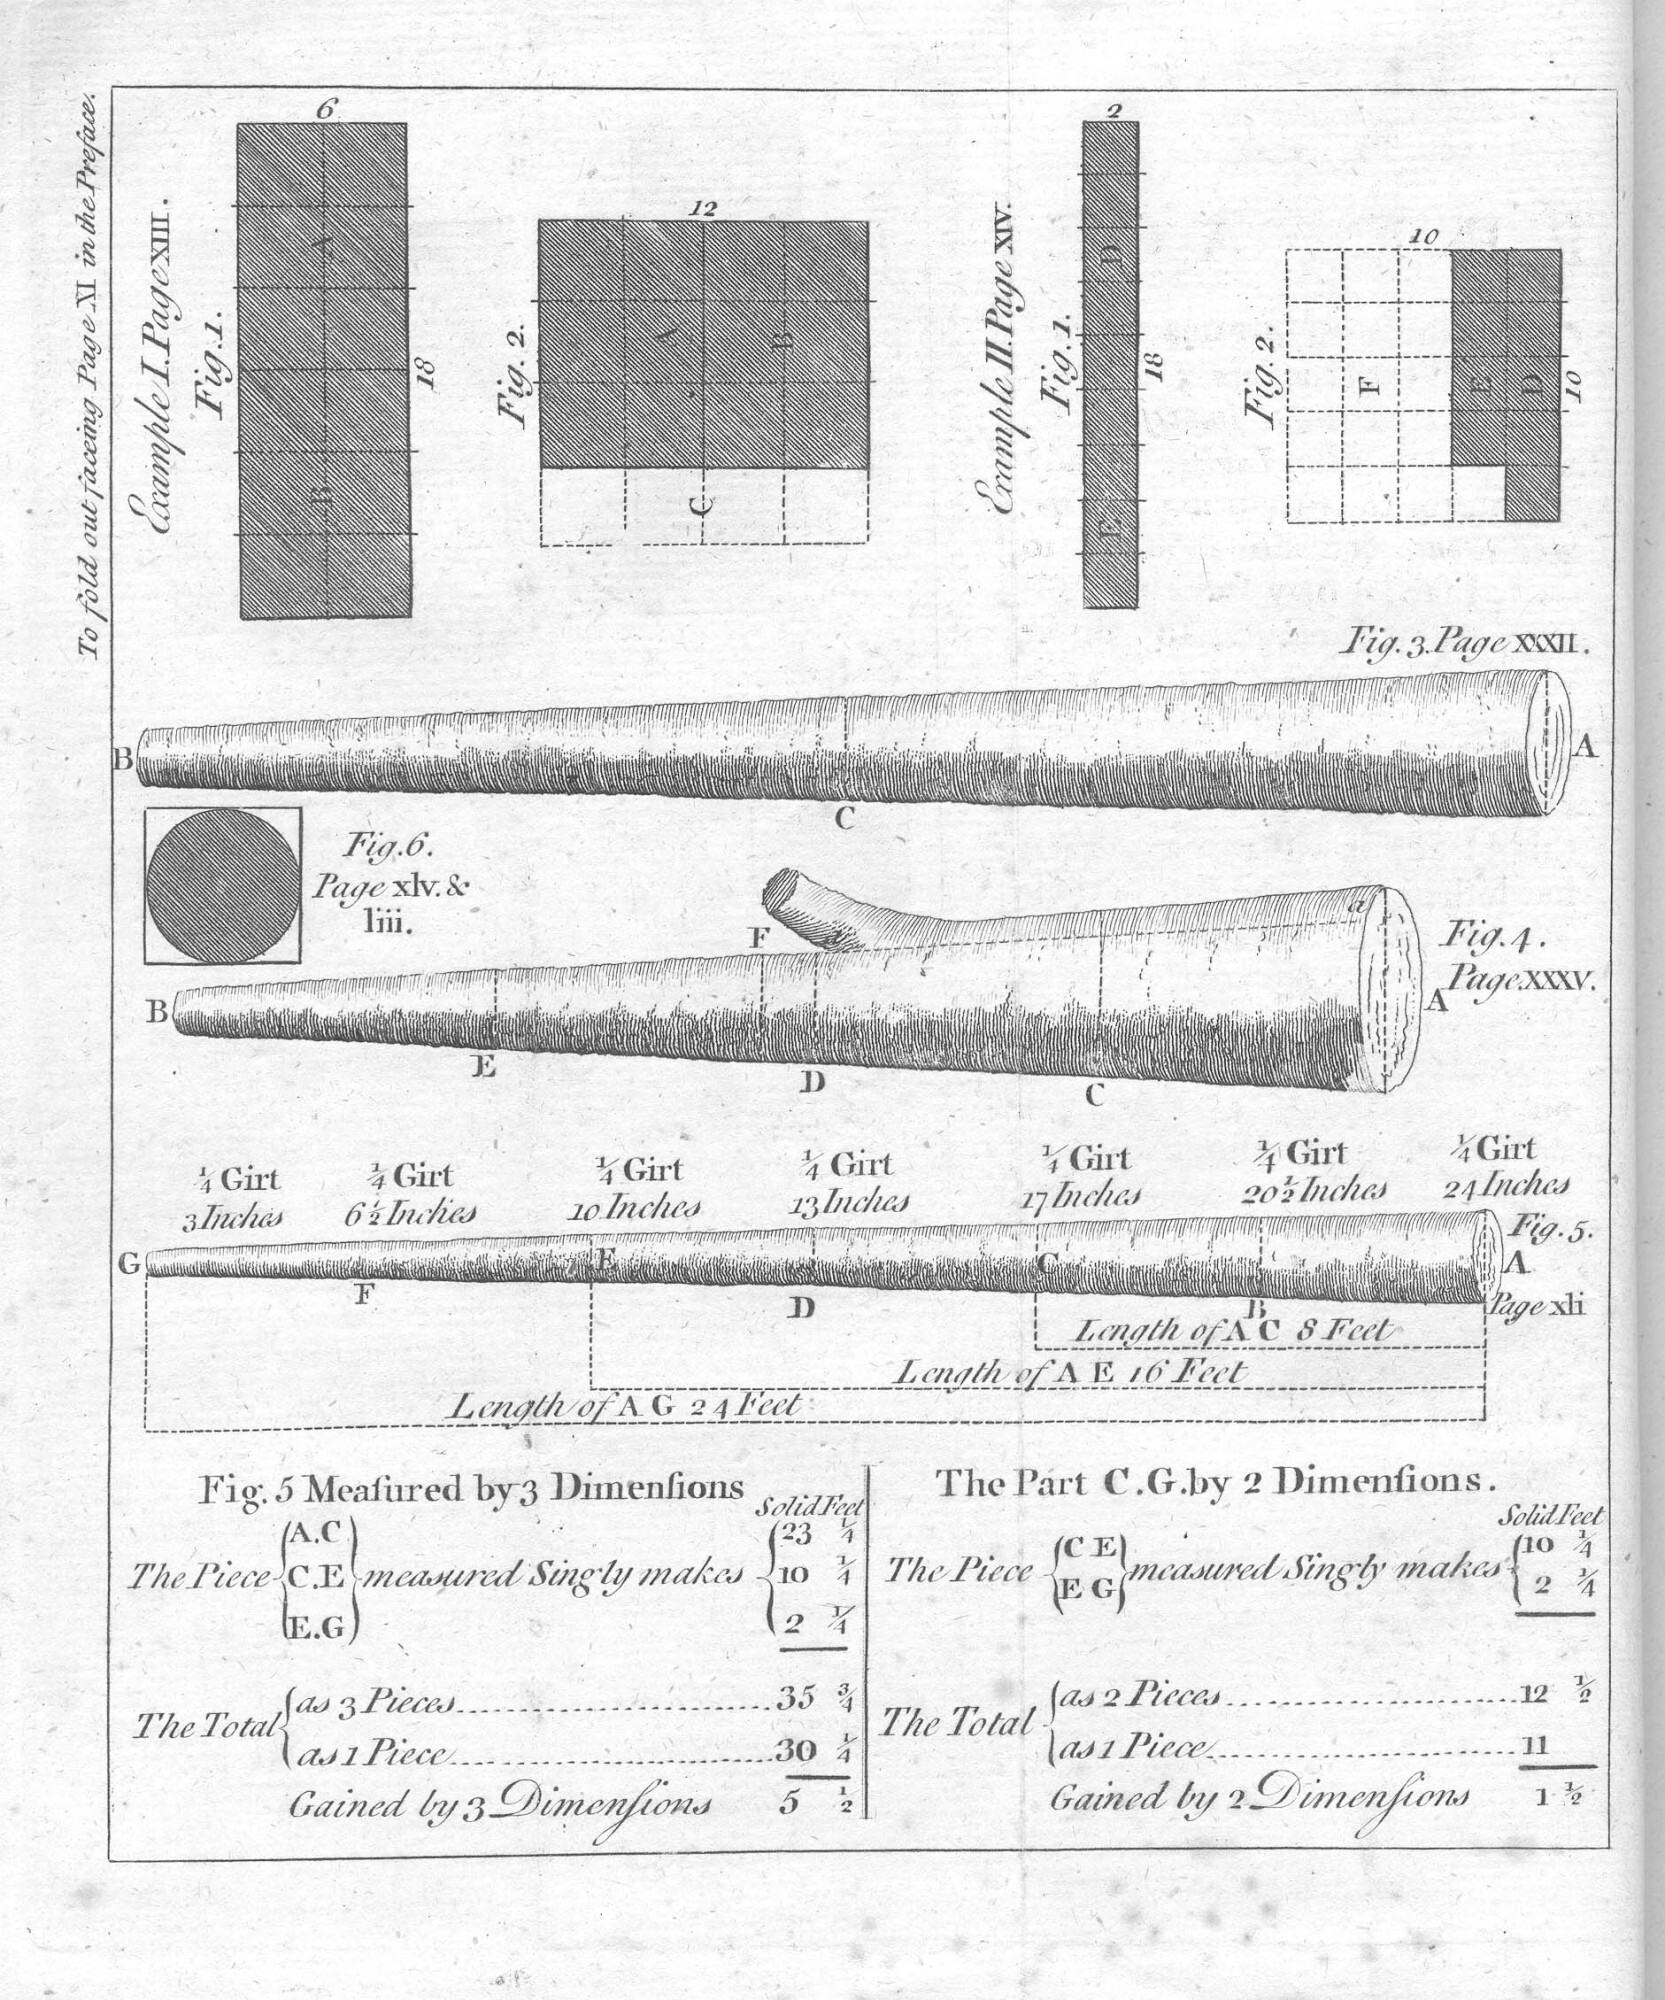 To fold out faceing Page XI in the Preface.
Example I. Page XIII.
Fig. 1.
6
A
B
18
Fig. 2.
12
A
B
C
Example II. Page XIV.
Fig. 1.
2
D
E
18
Fig. 2.
10
F
E
D
10
Fig. 3. Page XXXII.
B
A
C
Fig. 6.
Page xlv. &
liii.
Fig. 4.
Page XXXV.
a
a
F
B
A
E
D
C
¼ Girt ¼ Girt ¼ Girt ¼ Girt ¼ Girt ¼ Girt ¼ Girt
3 Inches 6½ Inches 10 Inches 13 Inches 17 Inches 20½ Inches 24 Inches
Fig. 5.
G E C A
F D B
Page xli
Length of A C 8 Feet
Length of A E 16 Feet
Length of A G 24 Feet
Fig. 5 Meaſured by 3 Dimenſions
Solid Feet
A.C 23 ¼
The Piece C.E measured Singly makes 10 ¼
E.G 2 ¼
The Total
as 3 Pieces 35 ¾
as 1 Piece 30 ¼
Gained by 3 Dimenſions 5 ½
The Part C.G. by 2 Dimenſions.
Solid Feet
C E 10 ¼
The Piece measured Singly makes
E G 2 ¼
The Total
as 2 Pieces 12 ½
as 1 Piece 11
Gained by 2 Dimenſions 1 ½